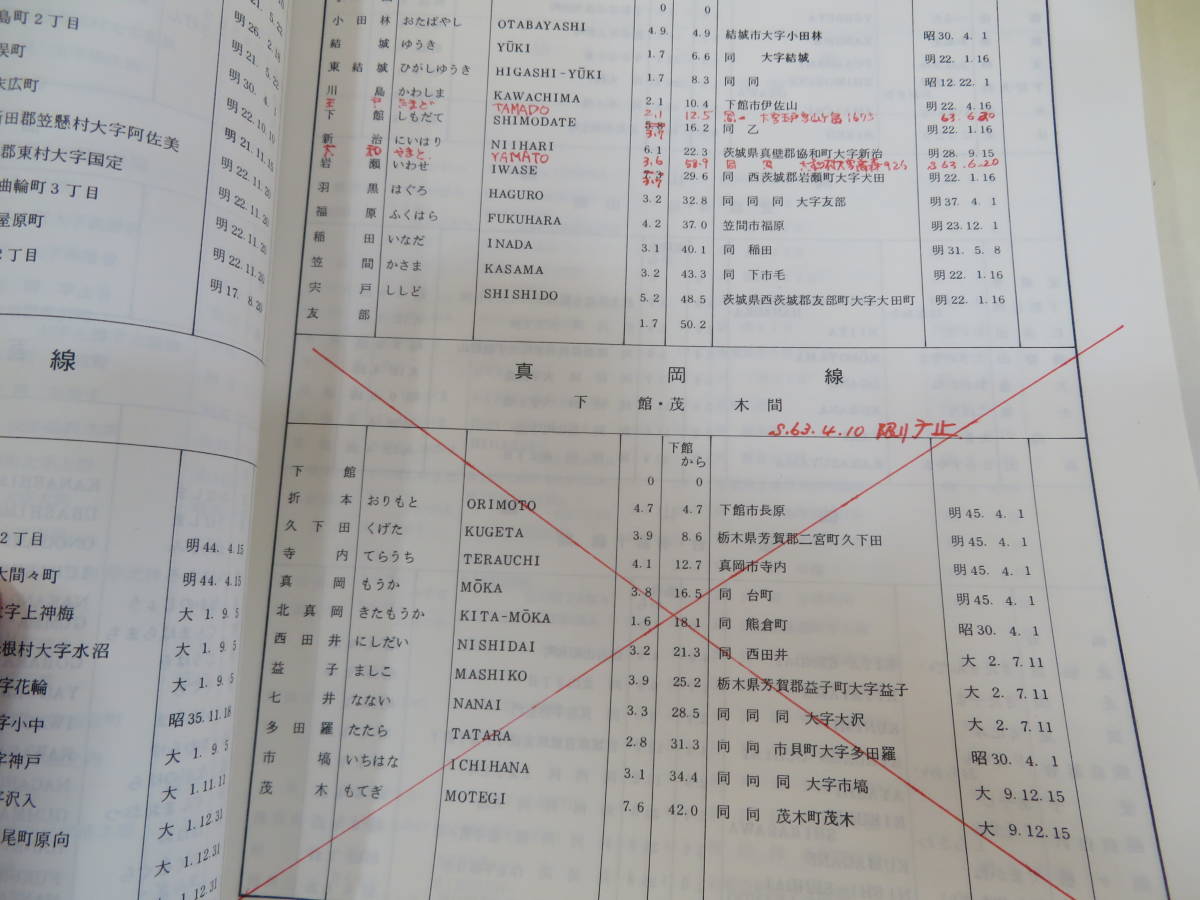 島町2丁目
末広町
新田郡笠懸村大字阿佐美
郡東村大字国定
曲輪町3丁目
屋原町
2丁目
明26. 2.
明21. 5.
明30. 4.
明22.10.10
明21.11.15
明22.11.20
明22.11.20
明22.11.20
明17. 8.20
線
2丁目 明44. 4.15
大間々町 明44. 4.15
大字上神梅 大 1. 9. 5
根村大字水沼 大 1. 9. 5
字花輪 大 1. 9. 5
字小中 昭35.11.18
字神戸 大 1. 9. 5
字沢入 大 1.11.11
尾町原向 大 1.12.31
大 1.12.31
1.12.31
0 0
小田林 おたばやし OTABAYASHI 4.9 4.9 結城市大字小田林 昭30. 4. 1
結城 ゆうき YŪKI 1.7 6.6 同 大字結城 明22. 1.16
東結城 ひがしゆうき HIGASHI-YŪKI 1.7 8.3 同 同 昭12.22. 1
川島 かわしま KAWACHIMA 2.1 10.4 下館市伊佐山 明22. 4.16
玉戸 たまど TAMADO 2.1 12.5 63.6.20
下館 しもだて SHIMODATE 5.8 3.7 16.2 同 乙 明22. 1.16
新治 にいはり NIIHARI 6.1 22.3 茨城県真壁郡協和町大字新治 明28. 9.15
大和 やまと YAMATO 3.6 S63.6.20
岩瀬 いわせ IWASE 3.7 29.6 同 西茨城郡岩瀬町大字犬田 明22. 1.16
羽黒 はぐろ HAGURO 3.2 32.8 同 同 同 大字友部 明37. 4. 1
福原 ふくはら FUKUHARA 4.2 37.0 笠間市福原 明23.12. 1
稲田 いなだ INADA 3.1 40.1 同 稲田 明31. 5. 8
笠間 かさま KASAMA 3.2 43.3 同 下市毛 明22. 1.16
宍戸 ししど SHISHIDO 5.2 48.5 茨城県西茨城郡友部町大字大田町 明22. 1.16
友部 1.7 50.2
真岡線
下館・茂木間
S.63.4.10 限り廃止
下館から
下館 0 0
折本 おりもと ORIMOTO 4.7 4.7 下館市長原 明45. 4. 1
久下田 くげた KUGETA 3.9 8.6 栃木県芳賀郡二宮町久下田 明45. 4. 1
寺内 てらうち TERAUCHI 4.1 12.7 真岡市寺内 明45. 4. 1
真岡 もうか MŌKA 3.8 16.5 同 台町 明45. 4. 1
北真岡 きたもうか KITA-MŌKA 1.6 18.1 同 熊倉町 昭30. 4. 1
西田井 にしだい NISHIDAI 3.2 21.3 同 西田井 大 2. 7.11
益子 ましこ MASHIKO 3.9 25.2 栃木県芳賀郡益子町大字益子 大 2. 7.11
七井 なない NANAI 3.3 28.5 同 同 同 大字大沢 大 2. 7.11
多田羅 たたら TATARA 2.8 31.3 同 同 市貝町大字多田羅 昭30. 4. 1
市塙 いちはな ICHIHANA 3.1 34.4 同 同 同 大字市塙 大 9.12.15
茂木 もてぎ MOTEGI 7.6 42.0 同 同 茂木町茂木 大 9.12.15